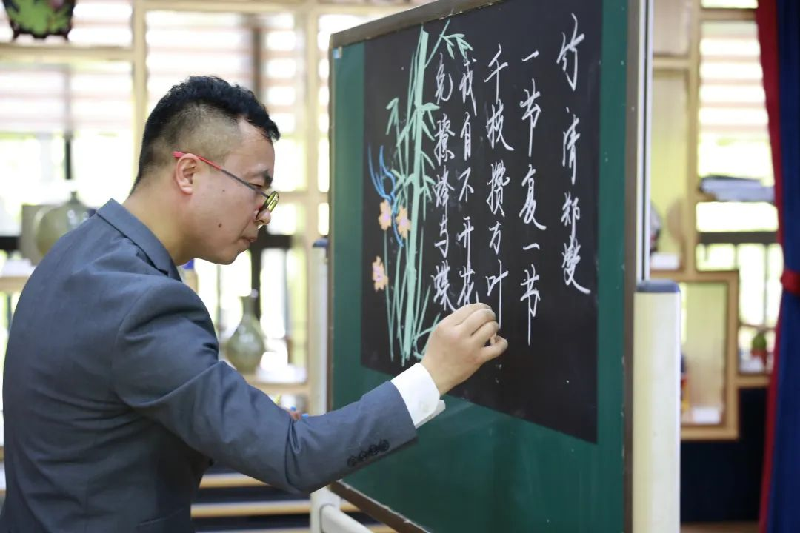 竹 清 郑燮
一节复一节
千枝攒万叶
我自不开花
免撩蜂与蝶